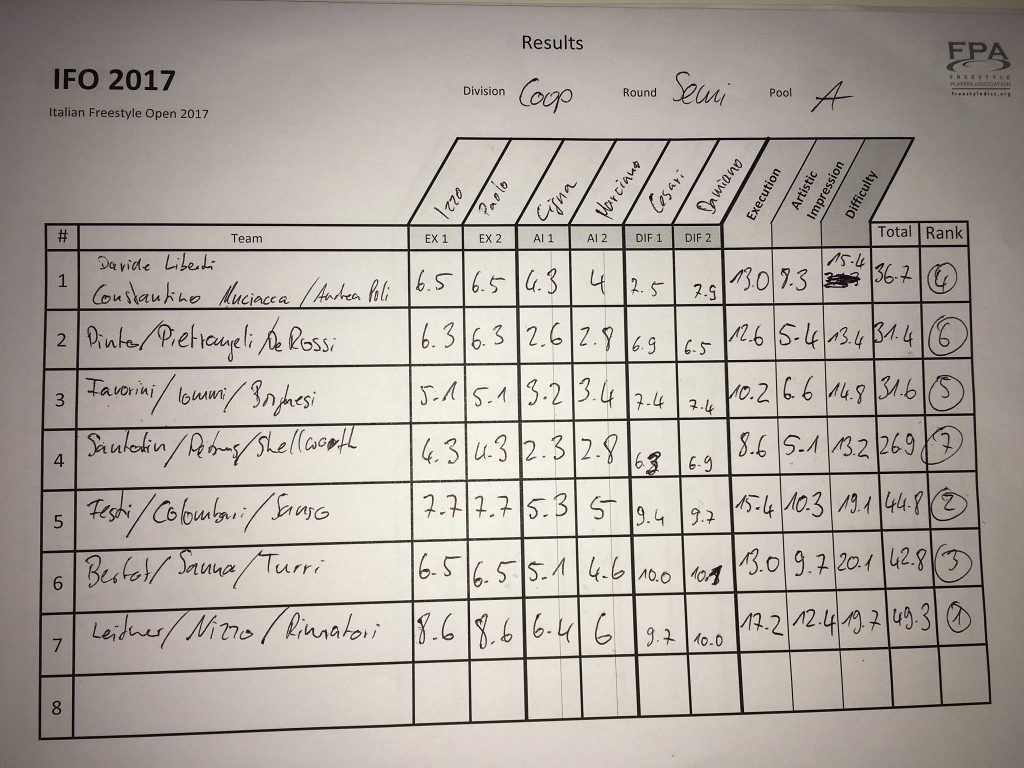 Results
FPA
FREESTYLE
PLAYERS ASSOCIATION
freestyledisc.org
IFO 2017
Italian Freestyle Open 2017
Division Coop Round Semi Pool A
Izzo Paolo Cigna Marciano Cesari Damiano Execution Artistic Impression Difficulty
# Team EX 1 EX 2 AI 1 AI 2 DIF 1 DIF 2 Total Rank
Davide Liberti
1 Constantino Muciacca / Andrea Poli 6.5 6.5 4.3 4 7.5 7.9 13.0 8.3 15.4 36.7 4
2 Pinto / Pietrangeli / De Rossi 6.3 6.3 2.6 2.8 6.9 6.5 12.6 5.4 13.4 31.4 6
3 Favorini / Iommi / Borghesi 5.1 5.1 3.2 3.4 7.4 7.4 10.2 6.6 14.8 31.6 5
4 / / 4.3 4.3 2.3 2.8 6.3 6.9 8.6 5.1 13.2 26.9 7
5 Festi / Colombari / Sanso 7.7 7.7 5.3 5 9.4 9.7 15.4 10.3 19.1 44.8 2
6 Bertat / Sanna / Turri 6.5 6.5 5.1 4.6 10.0 10.1 13.0 9.7 20.1 42.8 3
7 Leitner / Nizzo / Rimatori 8.6 8.6 6.4 6 9.7 10.0 17.2 12.4 19.7 49.3 1
8